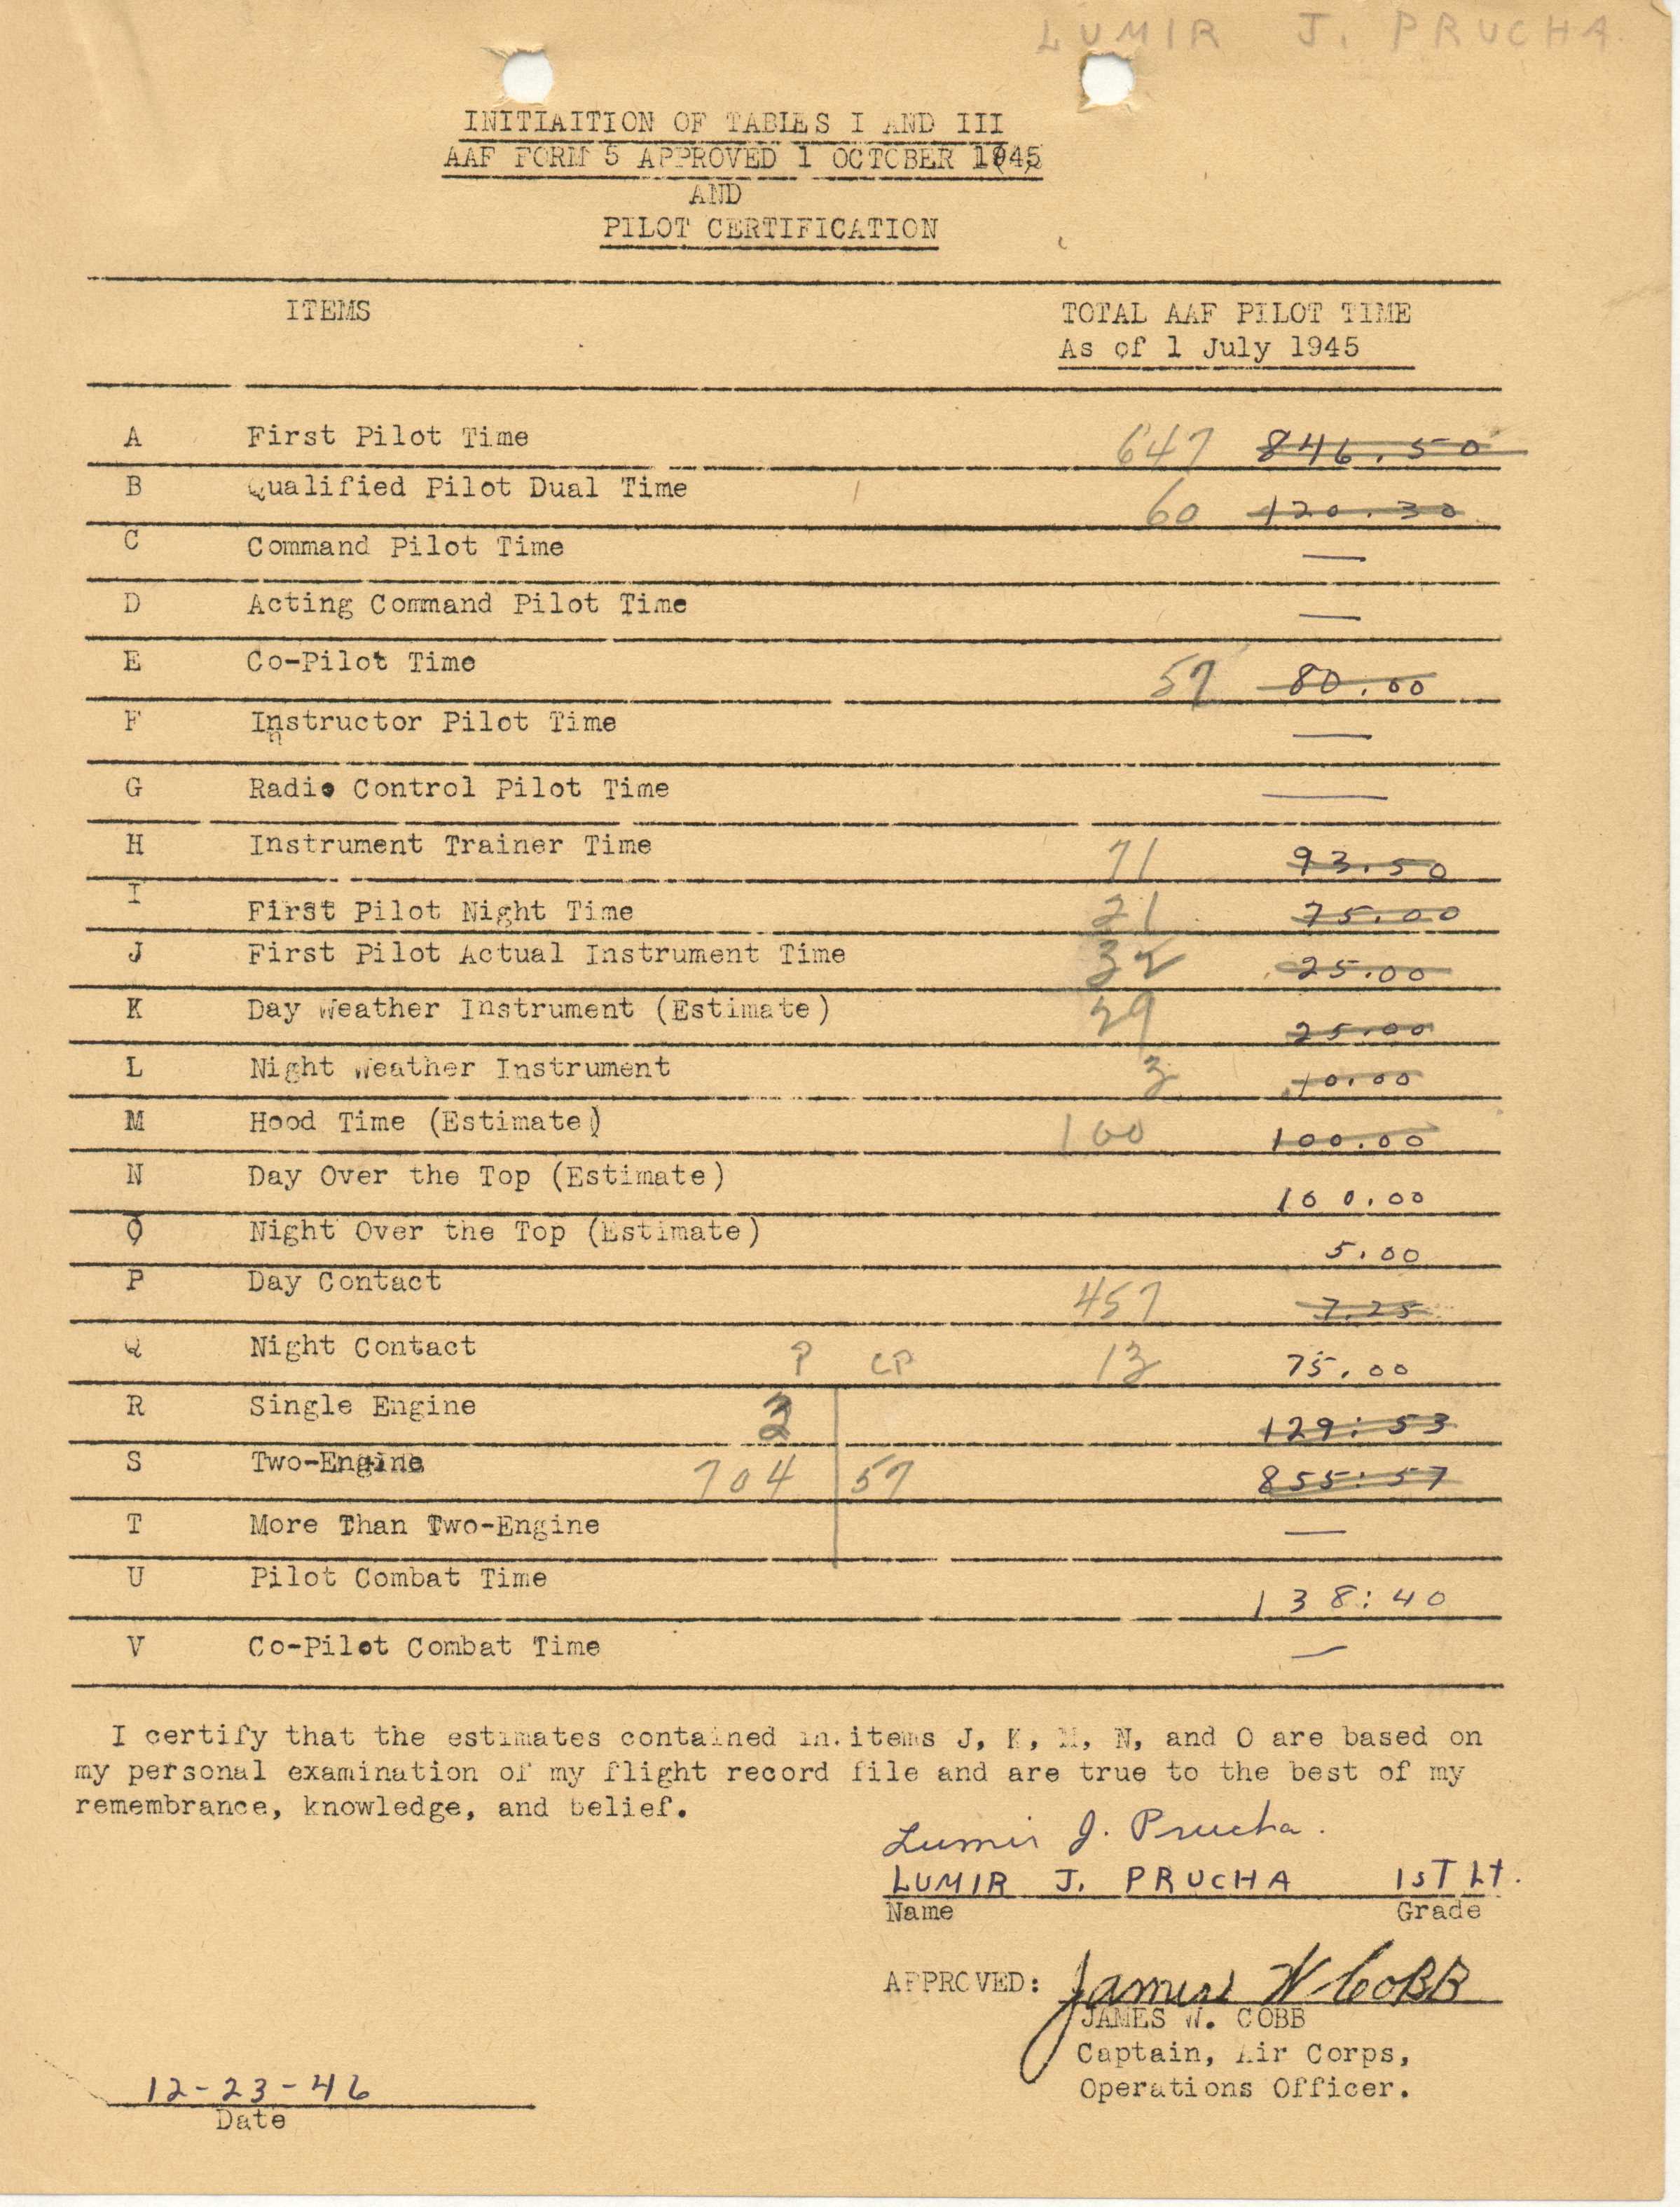 LUMIR J. PRUCHA
INITIAITION OF TABLES I AND III
AAF FORM 5 APPROVED 1 OCTOBER 1945
AND
PILOT CERTIFICATION
ITEMS TOTAL AAF PILOT TIME
As of 1 July 1945
A First Pilot Time 647 846.50
B Qualified Pilot Dual Time 60 120.30
C Command Pilot Time —
D Acting Command Pilot Time —
E Co-Pilot Time 57 80.00
F Instructor Pilot Time —
n
G Radio Control Pilot Time —
H Instrument Trainer Time 71 93.50
I First Pilot Night Time 21 75.00
J First Pilot Actual Instrument Time 32 25.00
K Day Weather Instrument (Estimate) 29 25.00
L Night Weather Instrument 3 10.00
M Hood Time (Estimate) 100 100.00
N Day Over the Top (Estimate) 100.00
O Night Over the Top (Estimate) 5.00
P Day Contact 457 7.25
Q Night Contact P CP 13 75.00
R Single Engine 3 129:53
S Two-Engine 704 57 855:57
T More Than Two-Engine —
U Pilot Combat Time 138:40
V Co-Pilot Combat Time —
I certify that the estimates contained in items J, K, M, N, and O are based on
my personal examination of my flight record file and are true to the best of my
remembrance, knowledge, and belief.
Lumir J. Prucha.
LUMIR J. PRUCHA 1ST Lt.
Name Grade
APPROVED: James W Cobb
JAMES W. COBB
Captain, Air Corps,
Operations Officer.
12-23-46
Date